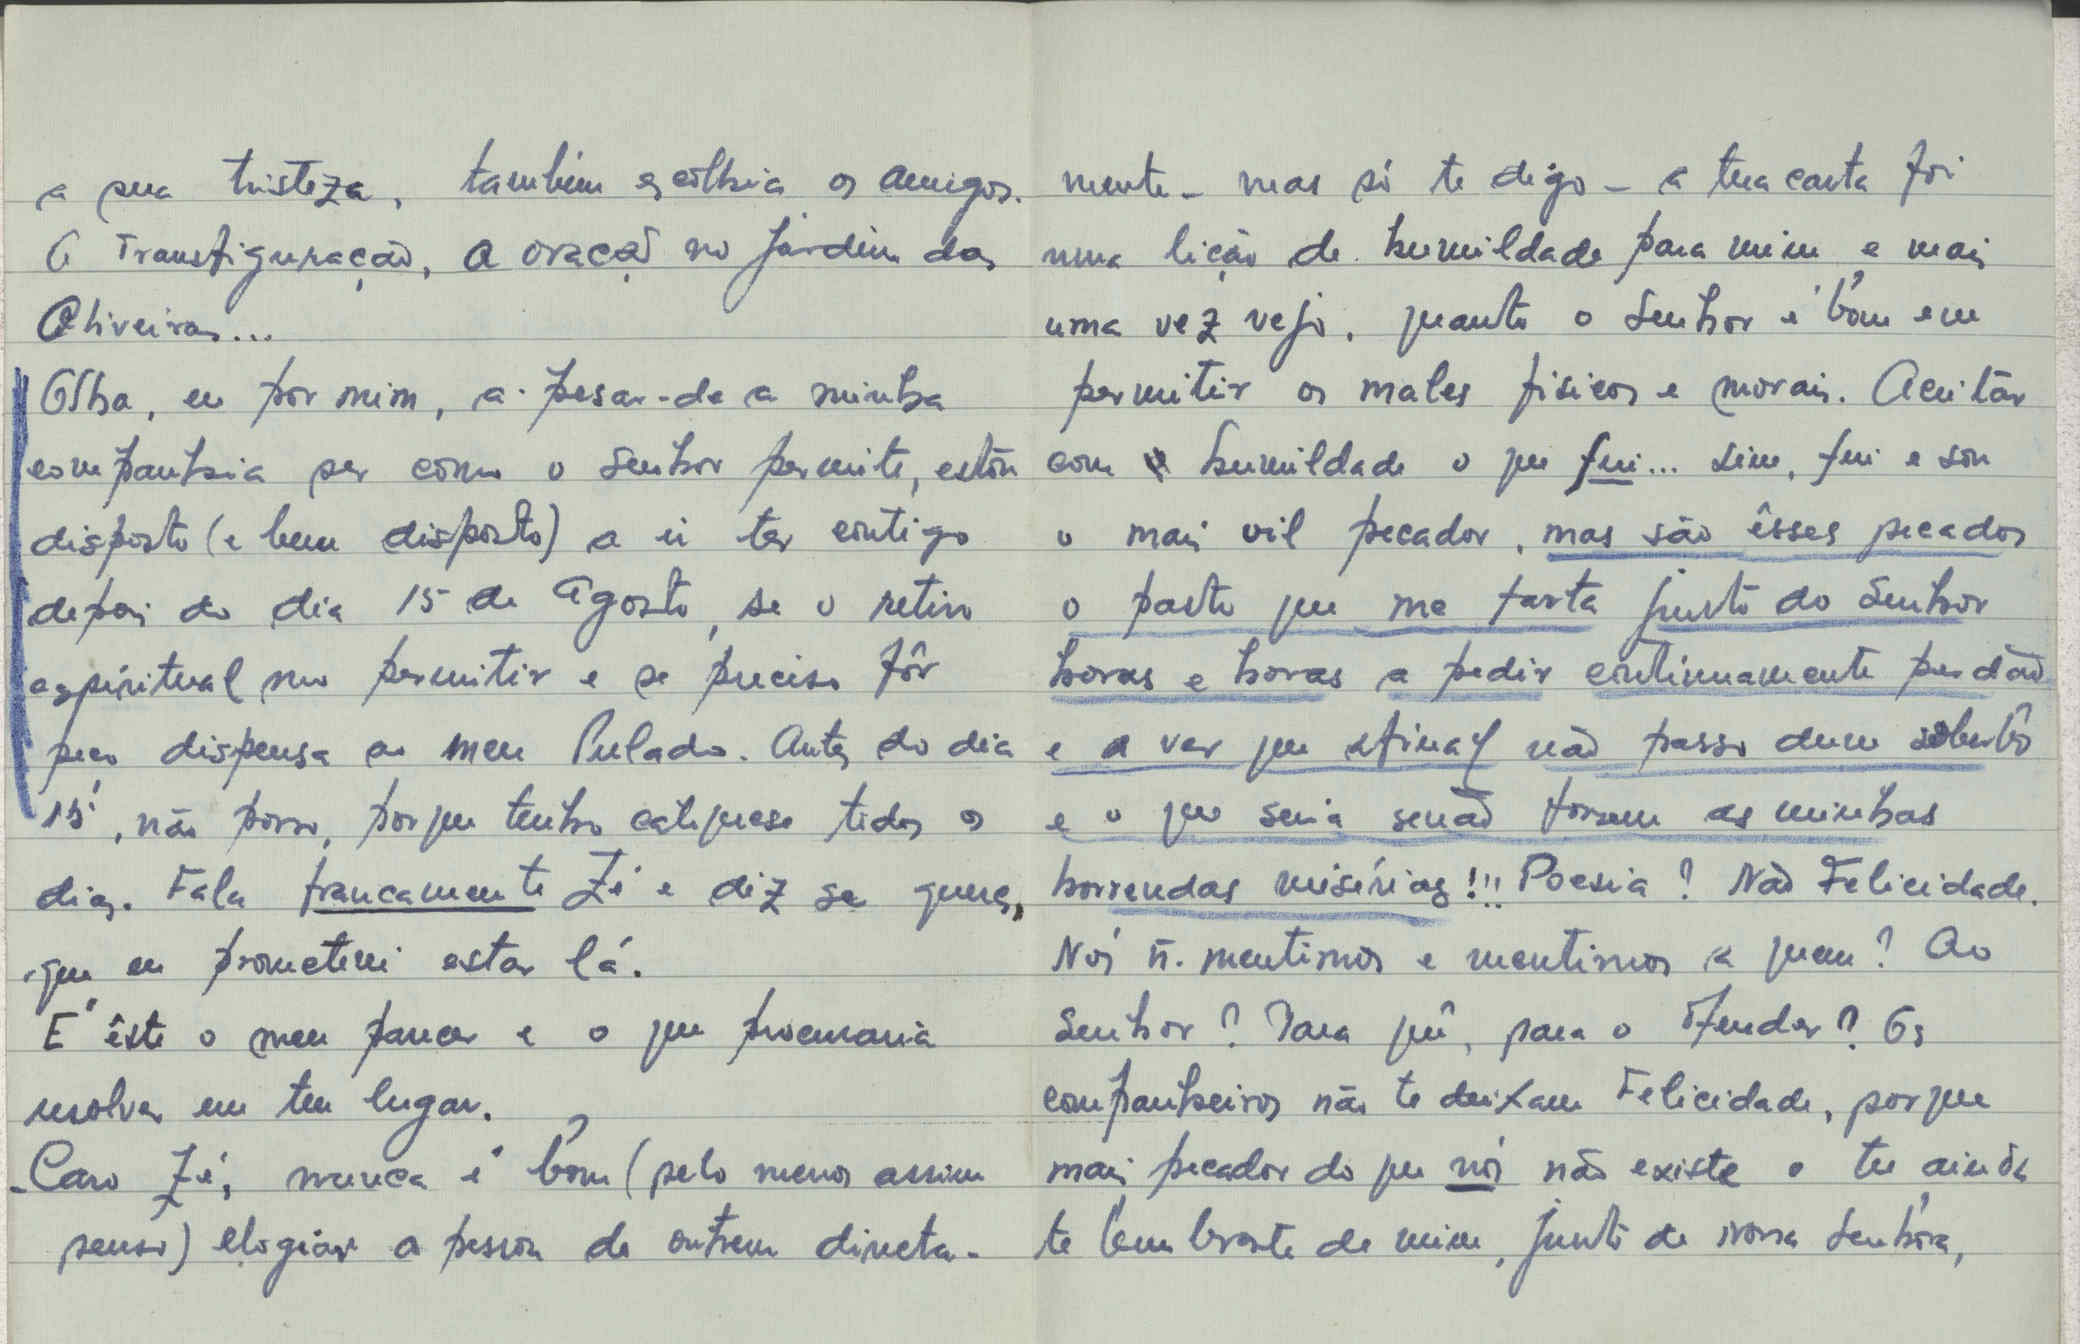 a sua tristeza, também escolhia os amigos.
A Transfiguração, a oração no Jardim das
Oliveiras...
Olha, eu por mim, a-pesar-de a minha
companhia ser como o Senhor permite, estou
disposto (e bem disposto) a ir ter contigo
depois do dia 15 de Agosto, se o retiro
espiritual mo permitir e se preciso fôr
peço dispensa ao meu Prelado. Antes do dia
15, não posso, porque tenho catequese todos os
dias. Fala francamente Zé e diz se queres,
que eu prometerei estar lá.
É êste o meu parecer e o que procuraria
resolver em teu lugar.
Caro Zé, nunca é bom (pelo menos assim
penso) elogiar a pessoa de outrem directa-
mente - mas só te digo - a tua carta foi
uma lição de humildade para mim e mais
uma vez vejo, quanto o Senhor é bom em
permitir os males fisicos e morais. Aceitar
com humildade o que fui... sim, fui e sou
o mais vil pecador, mas são êsses pecados
o pasto que me farta junto do Senhor
horas e horas a pedir continuamente perdão
e a ver que afinal não passo dum soberbo
e o que seria senão fossem as minhas
horrendas misérias!!! Poesia? Não Felicidade.
Nós ñ. mentimos e mentimos a quem? Ao
Senhor? Para quê, para o ofender? Os
companheiros não te deixam Felicidade, porque
mais pecador do que nós não existe e tu ainda
te lembraste de mim, junto de nossa Senhora,